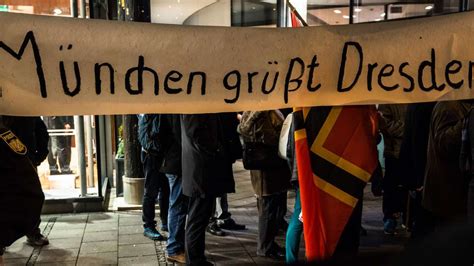 München grüßt Dresden